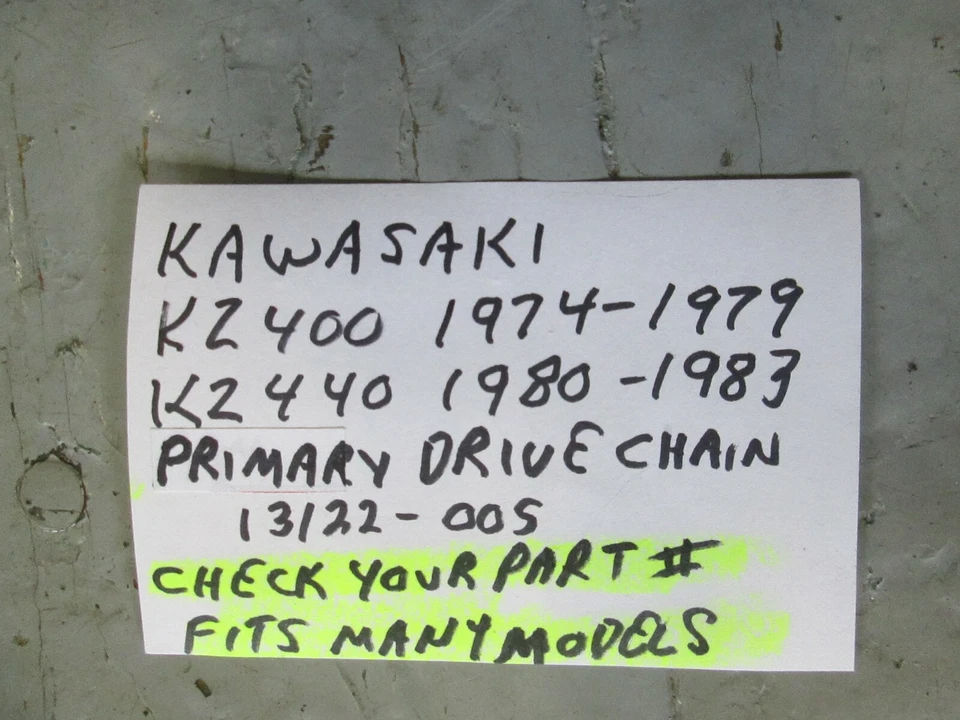 KAWASAKI
KZ 400 1974-1979
KZ 440 1980-1983
PRIMARY DRIVE CHAIN
13122-005
CHECK YOUR PART #
FITS MANY MODELS